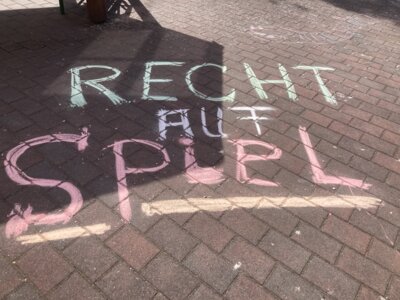 RECHT
AUF
SPIEL